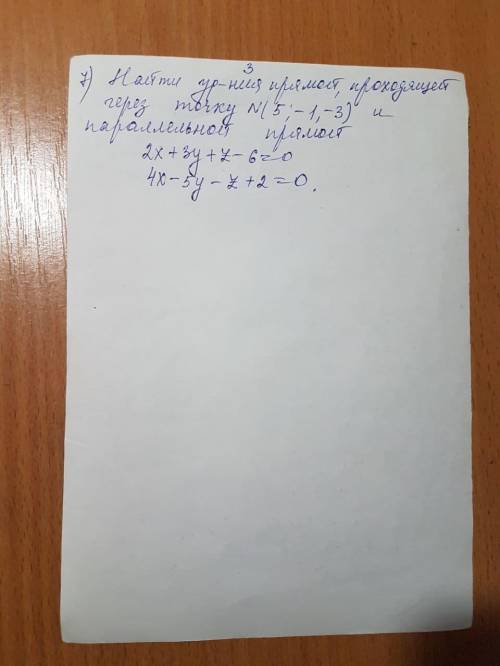 3
7) Найти ур-ния прямой, проходящей
через точку N(5; -1, -3) и
параллельной прямой
2x + 3y + z - 6 = 0
4x - 5y - z + 2 = 0.